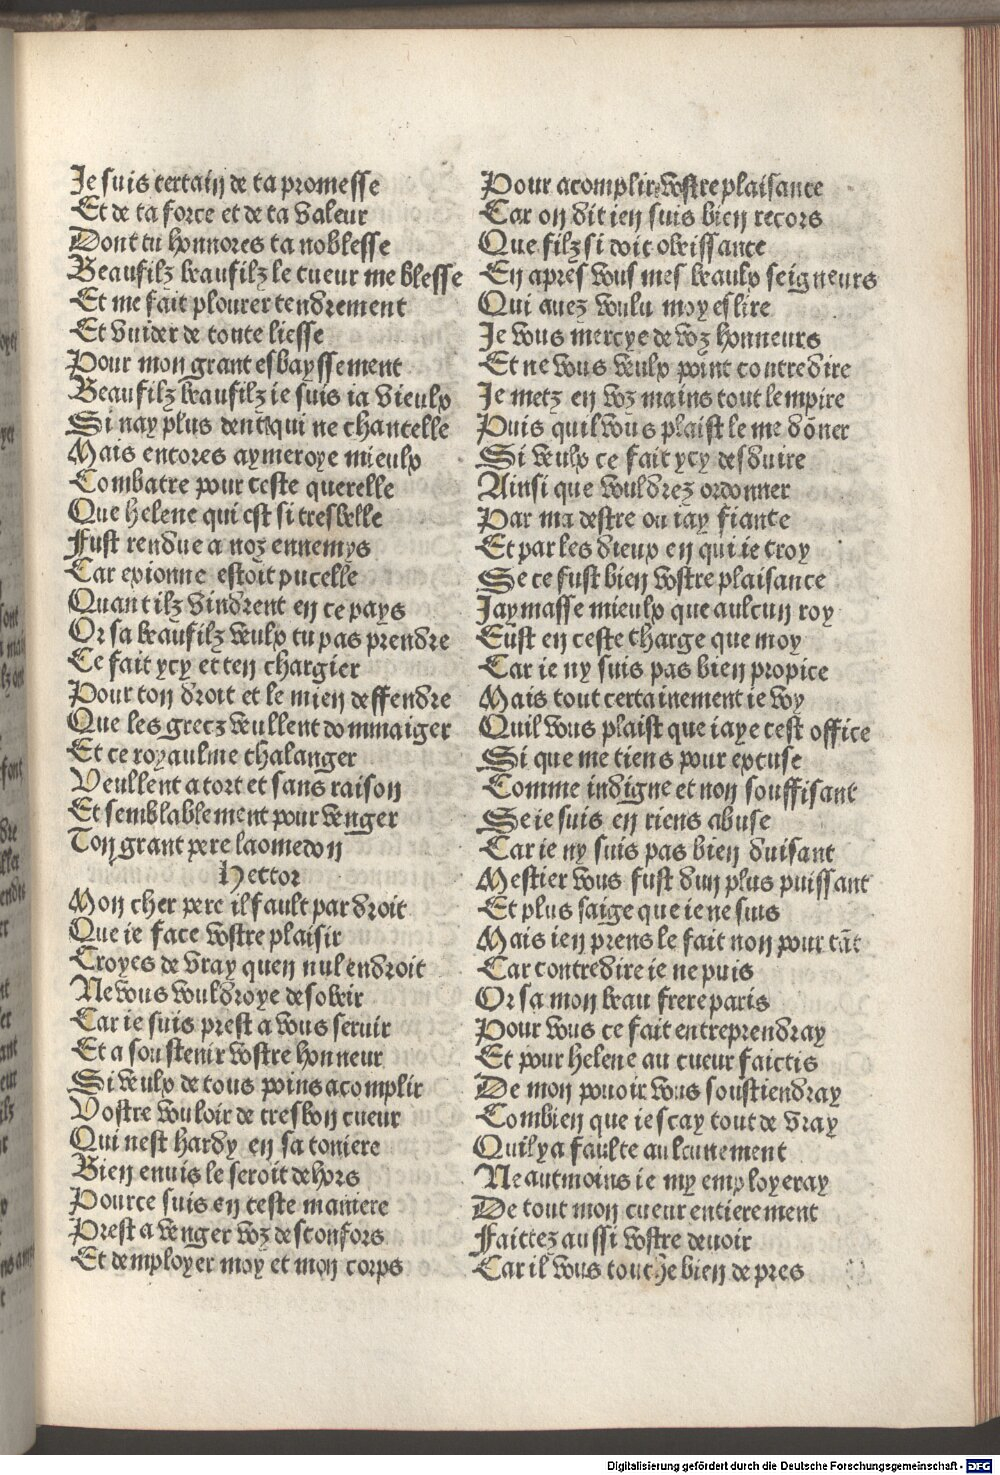 Je suis certain de ta promesse
Et de ta force et de ta valeur
Dont tu honnores ta noblesse
Beaufilz beaufilz le cueur me blesse
Et me fait plourer tendrement
Et vuider de toute liesse
Pour mon grant esbayssement
Beaufilz beaufilz ie suis ia vieulx
Si nay plus dent qui ne chancelle
Mais encores aymeroye mieulx
Combatre pour ceste querelle
Que helene qui est si tresbelle
Fust rendue a noz ennemys
Car exionne estoit pucelle
Quant ilz vindrent en ce pays
Or sa beaufilz veulx tu pas prendre
Ce fait ycy et ten chargier
Pour ton droit et le mien deffendre
Que les grecz veullent dommaiger
Et ce royaulme chalanger
Veullent a tort et sans raison
Et semblablement pour venger
Ton grant pere laomedon
Hector
Mon cher pere il fault par droit
Que ie face vostre plaisir
Croyes de vray quen nul endroit
Ne vous vouldroye desobeir
Car ie suis prest a vous seruir
Et a soustenir vostre honneur
Si veulx de tous poins acomplir
Vostre vouloir de tresbon cueur
Qui nest hardy en sa toniere
Bien enuis le seroit dehors
Pource suis en ceste maniere
Prest a venger voz desconfors
Et demployer moy et mon corps
Pour acomplir vostre plaisance
Car on dit ien suis bien recors
Que filz si doit obeissance
En apres vous mes beaulx seigneurs
Qui auez voulu moy eslire
Je vous mercye de voz honneurs
Et ne vous veulx point contredire
Je metz en voz mains tout lempire
Puis quil vous plaist le me dōner
Si veulx ce fait ycy desduire
Ainsi que vouldrez ordonner
Par ma destre ou iay fiance
Et par les dieux en qui ie croy
Se ce fust bien vostre plaisance
Jaymasse mieulx que aulcun roy
Eust en ceste charge que moy
Car ie ny suis pas bien propice
Mais tout certainement ie voy
Quil vous plaist que iaye cest office
Si que me tiens pour excuse
Comme indigne et non souffisant
Se ie suis en riens abuse
Car ie ny suis pas bien duisant
Mestier vous fust dun plus puissant
Et plus saige que ie ne suis
Mais ien prens le fait non pour tāt
Car contredire ie ne puis
Or sa mon beau frere paris
Pour vous ce fait entreprendray
Et pour helene au cueur faictis
De mon pouoir vous soustiendray
Combien que ie scay tout de vray
Quil ya faulte aulcunement
Neautmoins ie my employeray
De tout mon cueur entierement
Faittez aussi vostre deuoir
Car il vous touche bien de pres
Digitalisierung gefördert durch die Deutsche Forschungsgemeinschaft - DFG